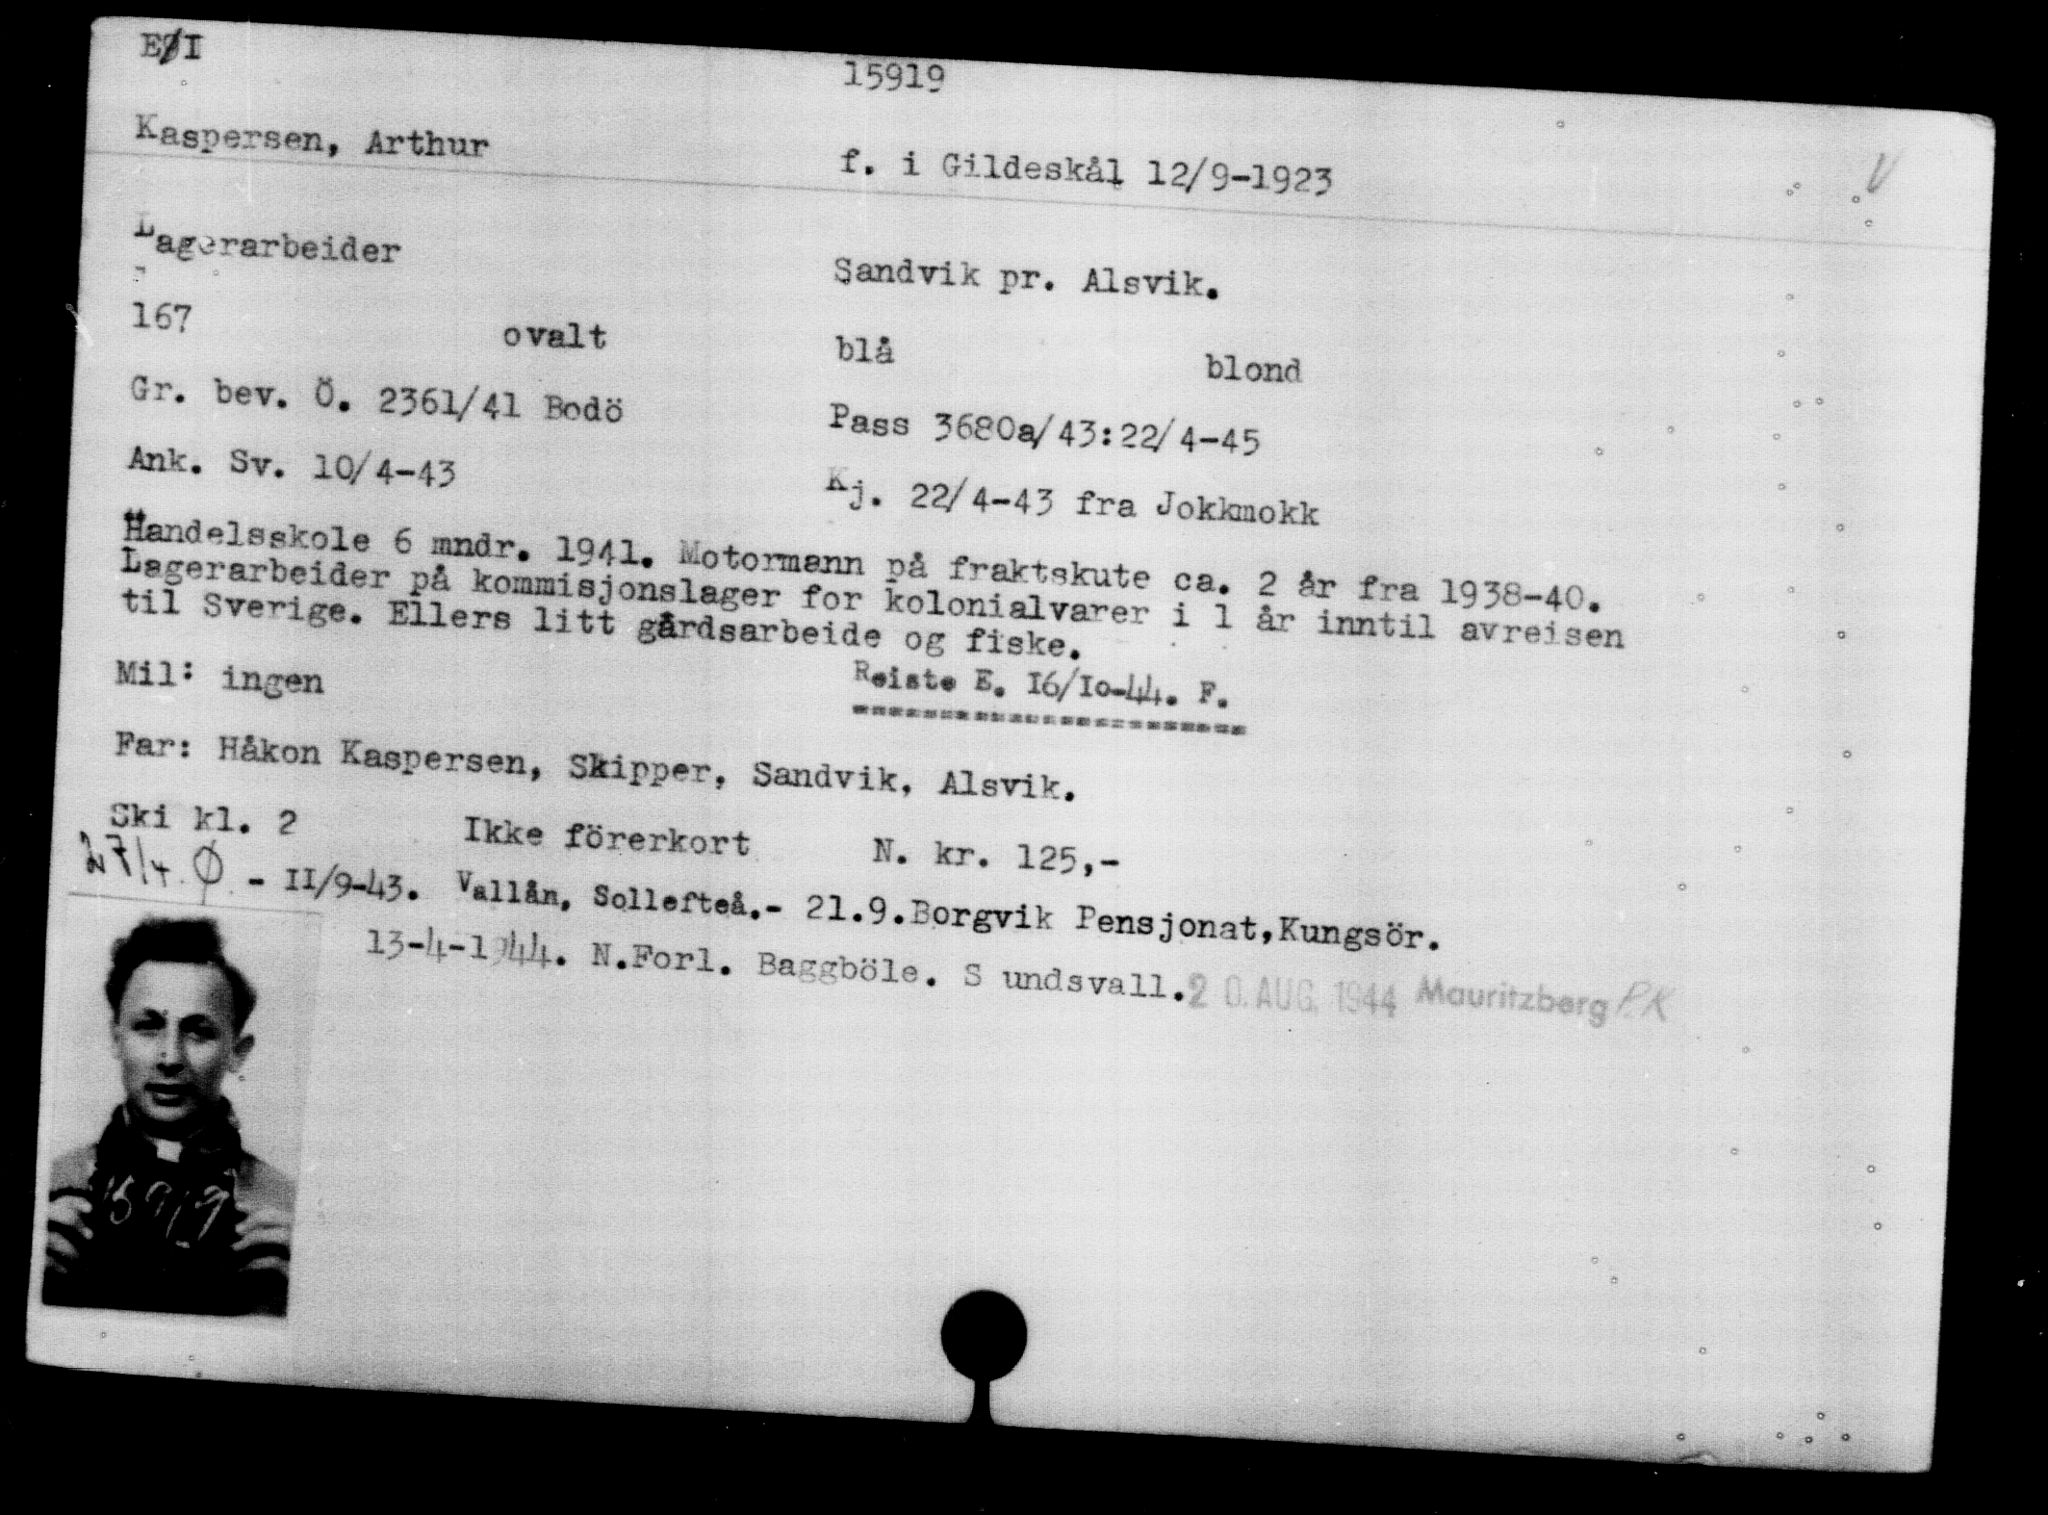 EØI
15919
Kaspersen, Arthur f. i Gildeskål 12/9-1923
V
Lagerarbeider Sandvik pr. Alsvik.
167 ovalt blå blond
Gr. bev. Ö. 2361/41 Bodö Pass 3680a/43:22/4-45
Ank. Sv. 10/4-43 Kj. 22/4-43 fra Jokkmokk
Handelsskole 6 mndr. 1941. Motormann på fraktskute ca. 2 år fra 1938-40.
Lagerarbeider på kommisjonslager for kolonialvarer i 1 år inntil avreisen
til Sverige. Ellers litt gårdsarbeide og fiske.
Mil: ingen Reiste E. I6/Io-44. F.
Far: Håkon Kaspersen, Skipper, Sandvik, Alsvik.
Ski kl. 2 Ikke förerkort N. kr. 125,-
27/4 Ø - II/9-43. Vallån, Sollefteå.- 21.9.Borgvik Pensjonat,Kungsör.
13-4-1944. N.Forl. Baggböle. S undsvall. 20. AUG. 1944 Mauritzberg P.K
15919